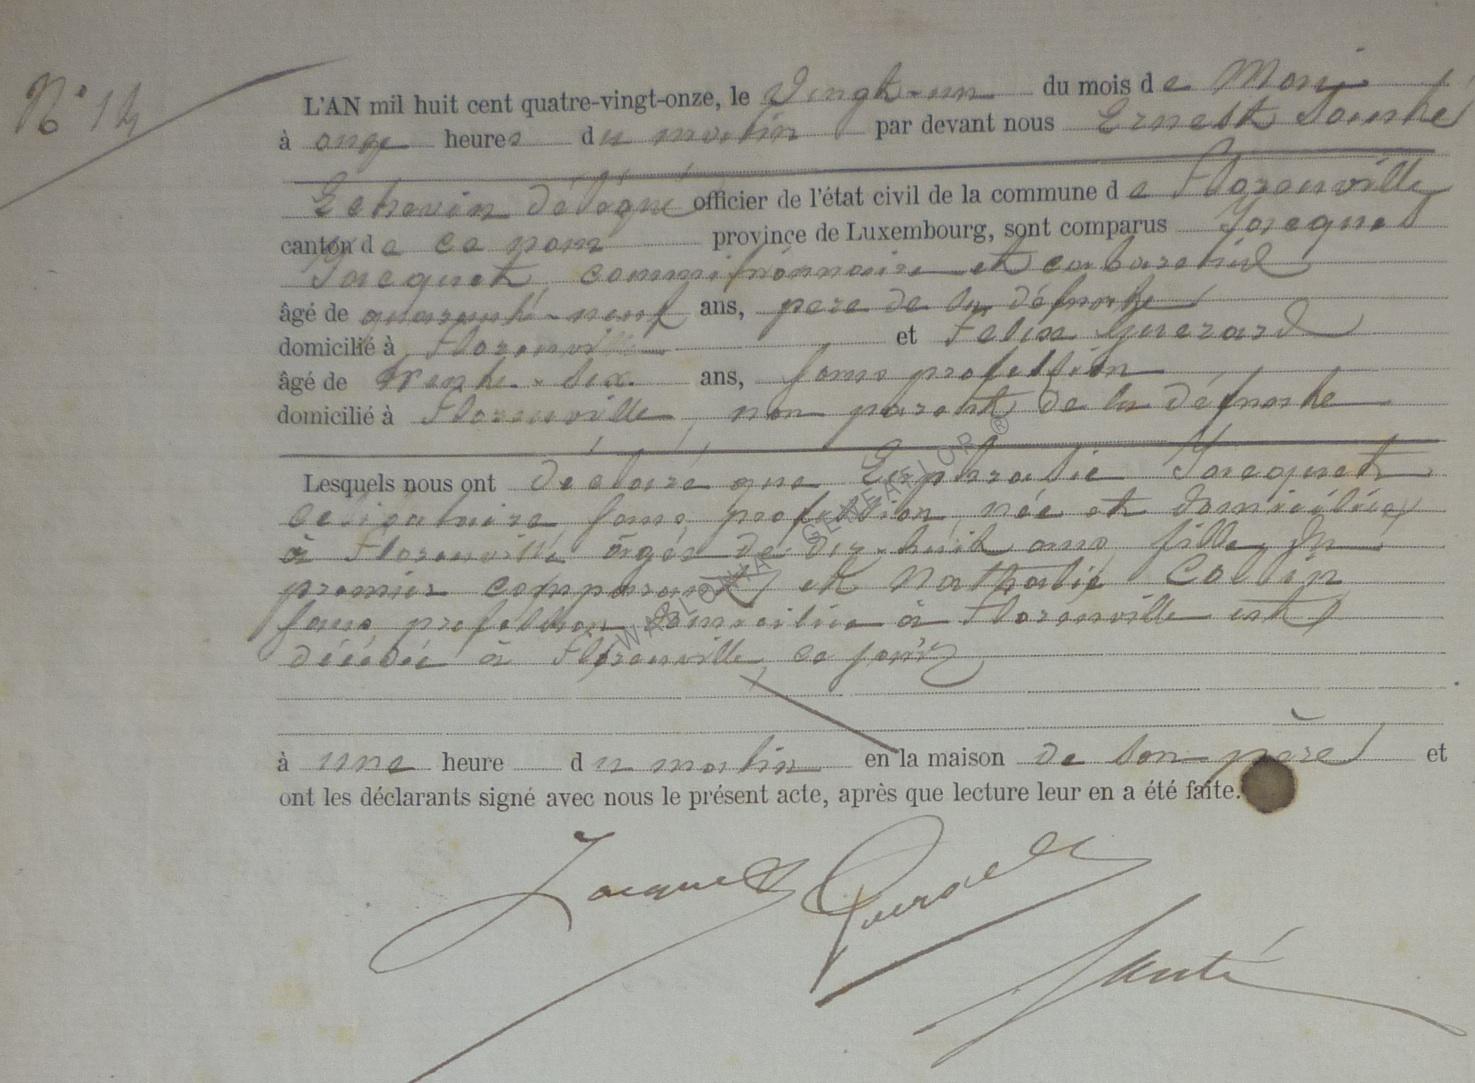 N° 14
L'AN mil huit cent quatre-vingt-onze, le Vingt-un du mois de Mai
à onze heures du matin par devant nous Ernest
Echevin délégué officier de l'état civil de la commune de Florenville
canton de ce nom province de Luxembourg, sont comparus Jacques
Jacquet, commissionnaire et cabaretier
âgé de quarante-neuf ans, père de la défunte
domicilié à Florenville et Félix Guerard
âgé de trente-six ans, sans profession
domicilié à Florenville, non parent de la défunte
Lesquels nous ont déclaré que Euphrasie Jacquet
célibataire sans profession, née et domiciliée
à Florenville âgée de dix-huit ans, fille du
premier comparant et Nathalie Collin
sans profession domiciliée à Florenville est
décédée à Florenville, ce jour
à une heure du matin en la maison de son père et
ont les déclarants signé avec nous le présent acte, après que lecture leur en a été faite.
Jacquet Guerard
WALLONIA GENEALOR ®